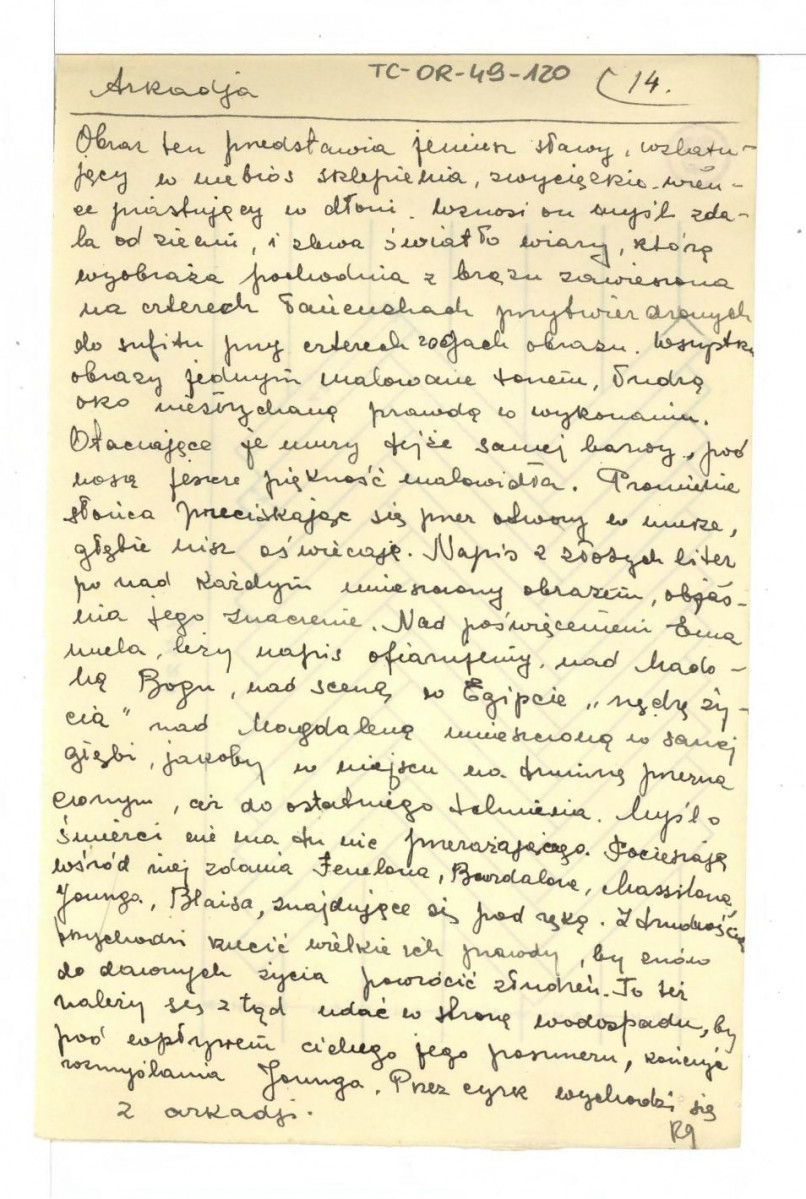 Arkadja TC-OR-49-120 (14.
Obraz ten przedstawia jeniusz sławy, wzlatu-
jący w niebios sklepienia, zwycięzkie wień-
ce piastujący w dłoni. Wznosi on myśl zda-
la od ziemi, i zlewa światło wiary, którą
wyobraża pochodnia z brązu zawieszona
na czterech łańcuchach przytwierdzonych
do sufitu przy czterech rogach obrazu. Wszystkie
obrazy jednym malowane tonem, łudzą
oko niesłychaną prawdą w wykonaniu.
Otaczające je mury tejże samej barwy, pod
noszą jeszcze piękność malowidła. Promienie
słońca przeciskając się przez otwory w murze,
głębie nisz oświecają. Napis z złotych liter
po nad każdym umieszczony obrazem, objaś-
nia jego znaczenie. Nad poświęceniem Ema
nuela, leży napis ofiarujemy, nad Mado-
ną Bogu, nad sceną w Egipcie „nędzę ży-
cia" nad Magdaleną umieszczoną w samej
głębi, jakoby w miejscu na trumnę przezna
czonym, aż do ostatniego tchnienia. Myśl o
śmierci nie ma tu nic przerażającego. Pocieszają
wśród niej zdania Fenelona, Burdalone, Massilona,
Younga, Blaisa, znajdujące się pod ręką. Z trudnością
przychodzi rzucić wielkie ich prawdy, by znów
do dawnych życia powrócić złudzeń. To też
należy się z tąd udać w stronę wodospadu, by
pod wpływem cichego jego poszmeru, kończyć
rozmyślania Younga. Przez cyrk wychodzi się
z arkadji.
Rg